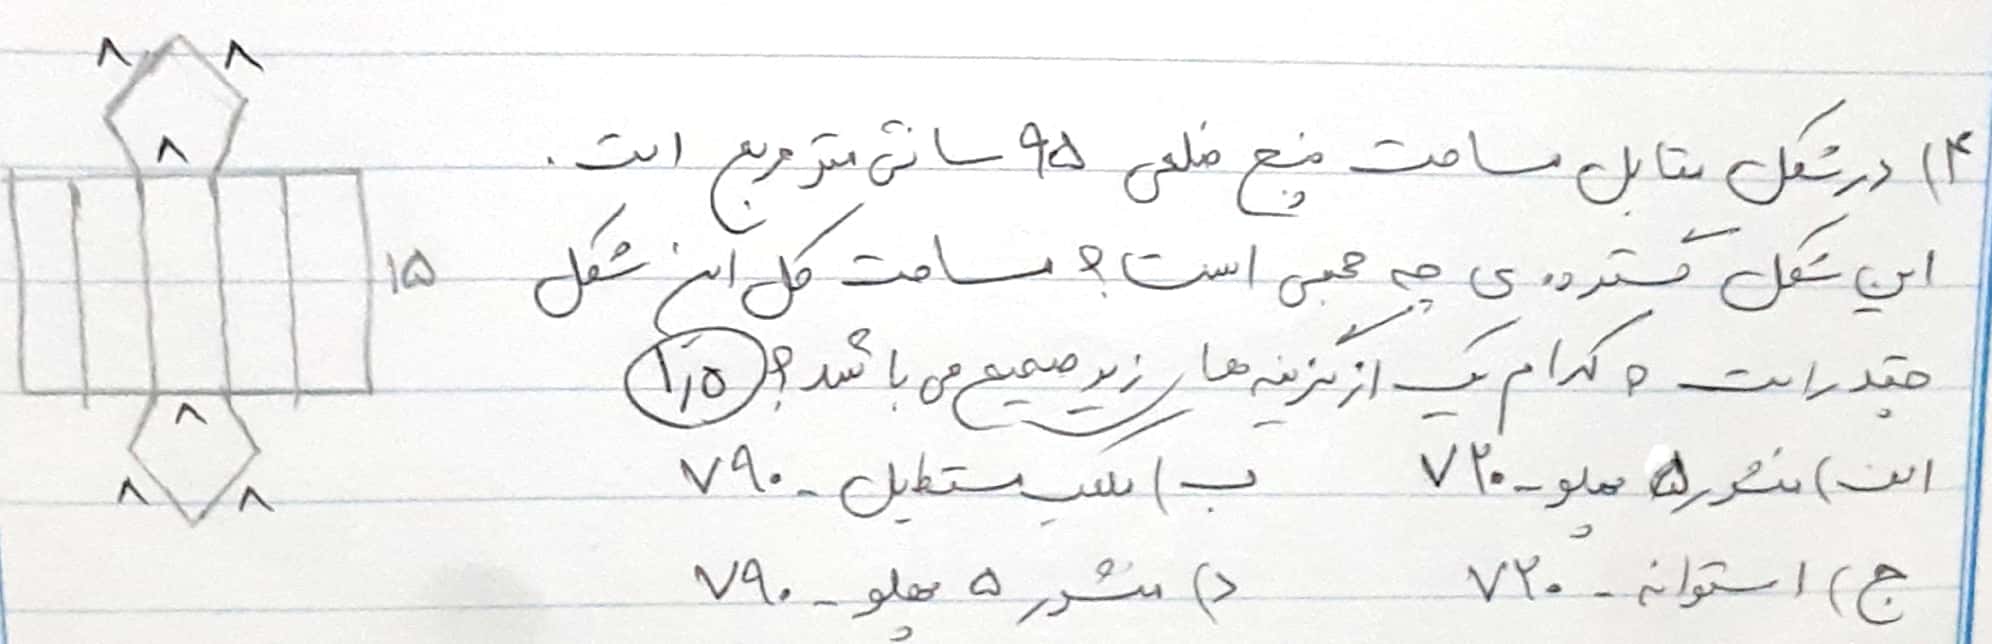 ۸ ۸
۸
۴) در شکل مقابل مساحت پنج ضلعی ۹۵ سانتی متر مربع است.
۱۵
این شکل گسترده ی چه حجمی است؟ مساحت کل این شکل
چقدر است و کدام یک از گزینه ها زیر صحیح می با شد؟ ۱٫۵
۸
۸ ۸
الف) منشور ۵ پهلو - ۷۲۰ ب) مکعب مستطیل - ۷۹۰
ج) استوانه - ۷۲۰ د) منشور ۵ پهلو - ۷۹۰